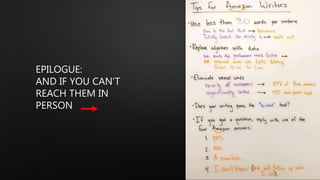 EPILOGUE:
AND IF YOU CAN'T
REACH THEM IN
PERSON
Tips for Amazon Writers
• Use less than 30 words per sentence
Due to the fact that → because
Totally lacked the ability to → could not
• Replace adjectives with data
We made the performance much faster →
We reduced server side tp90 latency
from 10 ms to 1 ms
• Eliminate weasel words
nearly all customers → 87% of Prime members
significantly better → +25 basis points
• Does your writing pass the "so what" test?
• If you get a question, reply with one of the
four Amazon answers:
1. yes.
2. no.
3. A number.
4. I don't know (and will follow up when
I do).